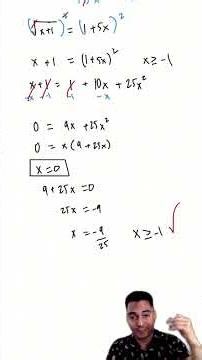 (√x+1)² = (1+5x)²
x+1 = (1+5x)² x ≥ -1
x+1 = 1 + 10x + 25x²
-x -1 -1 -x
0 = 9x + 25x²
0 = x(9+25x)
x=0
9+25x=0
25x = -9
x = -9/25 x ≥ -1 ✓